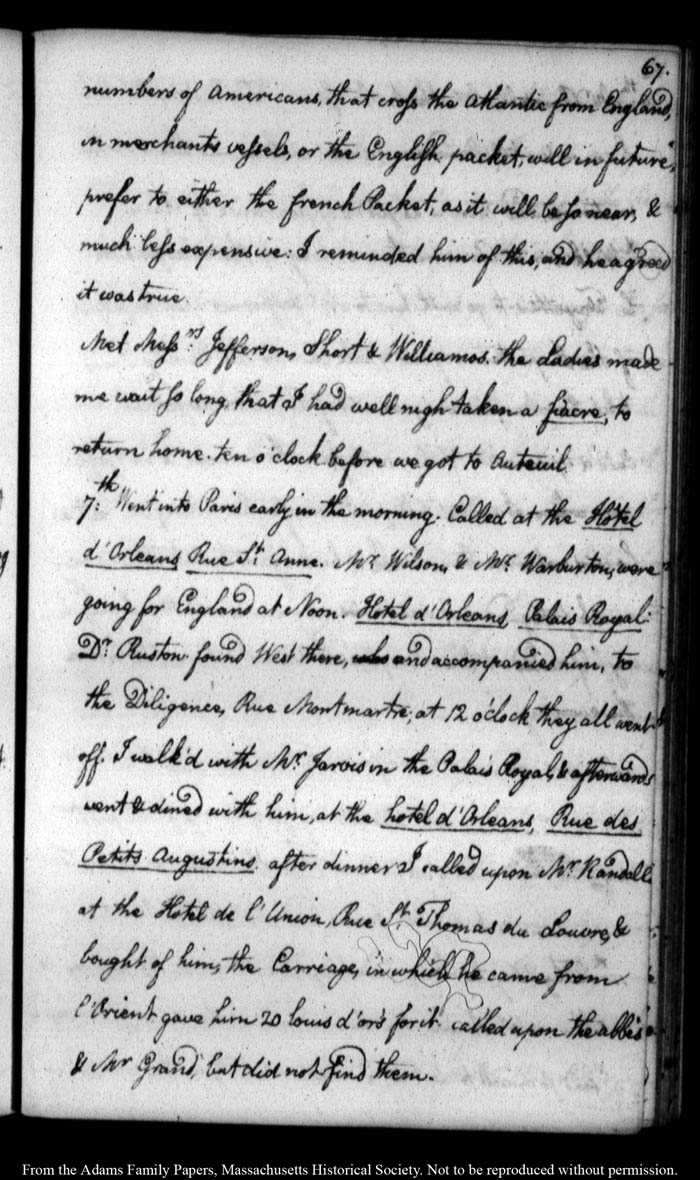 67.
numbers of Americans, that cross the Atlantic from England,
in merchants vessels, or the English packet, will in future,
prefer to either the french Packet, as it will be so near, &
much less expensive: I reminded him of this, and he agreed
it was true.
Met Mess.rs Jefferson, Short & Williamos. the Ladies made
me wait so long, that I had well nigh taken a fiacre, to
return home. ten o'clock before we got to Auteuil.
7.th Went into Paris early in the morning. Called at the Hôtel
d'Orleans Rue St. Anne. Mr. Wilson, & Mr. Warburton, were
going for England at Noon. Hotel d'Orleans, Palais Royal.
Dr. Ruston. found West there, who and accompanied him, to
the Diligence, Rue Montmartre, at 12 o'clock they all went
off. I walk'd with Mr. Jarvis in the Palais Royal, & afterwards
went & dined with him, at the hotel d'Orleans, Rue des
Petits Augustins. after dinner I called upon Mr. Randall
at the Hotel de l'Union, Rue St. Thomas du Louvre, &
bought of him, the Carriage, in which he came from
l'Orient gave him 20 louis d'ors for it. called upon the abbés
& Mr Grand, but did not find them.
From the Adams Family Papers, Massachusetts Historical Society. Not to be reproduced without permission.